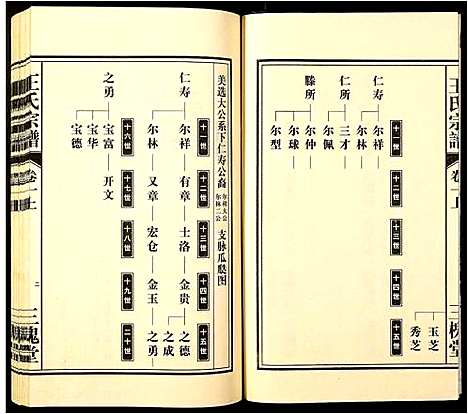 王氏宗譜
卷一上
三槐堂
十一世
十二世
十三世
十四世
十五世
仁寿
仁所
滕所
尔祥
尔林
三才
尔佩
尔仲
尔球
尔型
玉芝
秀芝
美选大公系下仁寿公裔
尔祥大公
尔林二公
支脉瓜瓞图
十一世
十二世
十三世
十四世
十五世
仁寿
尔祥
有章
士洛
金贵
之德
之成
尔林
又章
宏仓
金玉
之勇
十六世
十七世
十八世
十九世
二十世
之勇
宝富
开文
宝华
宝德
王氏宗譜
卷一上
二
三槐堂